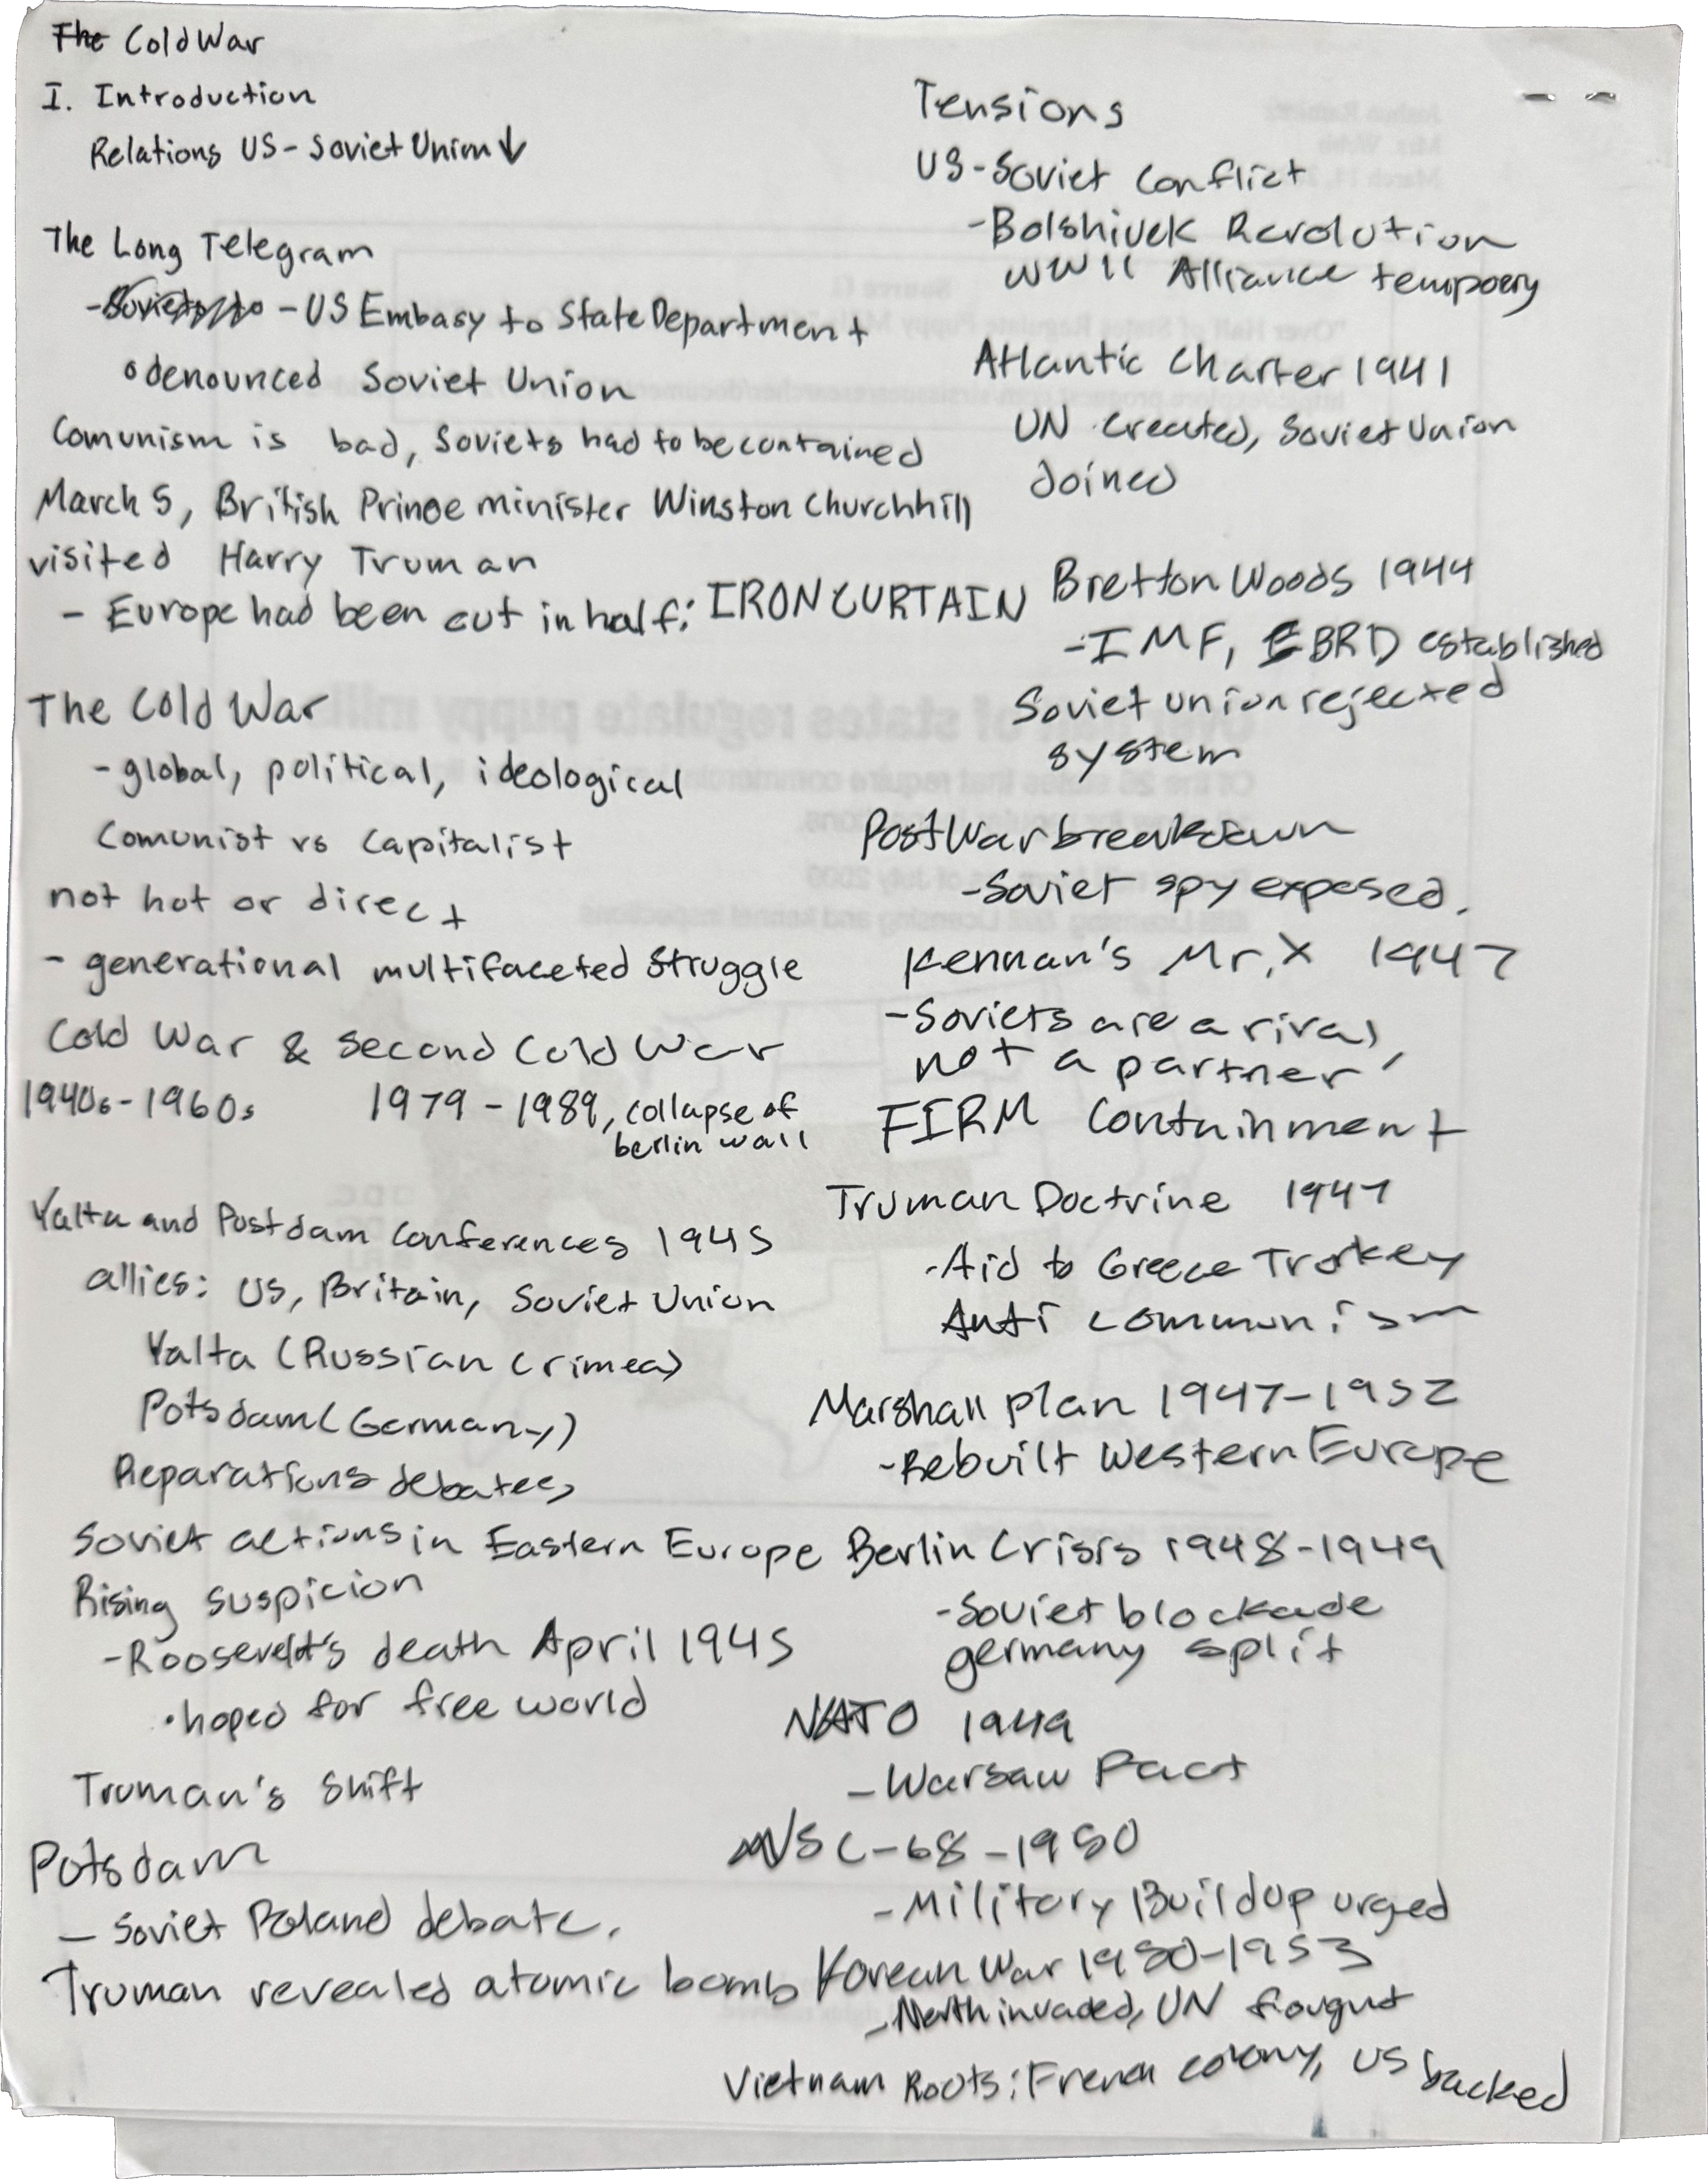 The Cold War
I. Introduction
Relations US - Soviet Union ↓
The Long Telegram
- US Embasy to State Department
denounced Soviet Union
Comunism is bad, Soviets had to be contained
March 5, British Prince minister Winston Churchhill
visited Harry Truman
- Europe had been cut in half: IRON CURTAIN
The Cold War
- global, political, ideological
Comunist vs Capitalist
not hot or direct
- generational multifaceted struggle
Cold War & Second Cold War
1940s - 1960s 1979 - 1989, collapse of
berlin wall
Yalta and Postdam Conferences 1945
allies: US, Britain, Soviet Union
Yalta (Russian Crimea)
Potsdam (Germany)
Reparations debates
Soviet actions in Eastern Europe
Rising suspicion
- Roosevelt's death April 1945
• hoped for free world
Truman's Shift
Potsdam
- Soviet Poland debate.
Truman revealed atomic bomb
Tensions
US - Soviet Conflict
- Bolshivek Revolution
WWII Alliance tempoery
Atlantic Charter 1941
UN Created, Soviet Union
Joined
Bretton Woods 1944
- IMF, EBRD established
Soviet union rejected
system
Post War breakdown
- Soviet spy exposed.
Kennan's Mr. X 1947
- Soviets are a rival,
not a partner
FIRM Containment
Truman Doctrine 1947
- Aid to Greece Trokey
Anti communism
Marshall plan 1947-1952
- Rebuilt Western Europe
Berlin Crisis 1948-1949
- Soviet blockade
germany split
NATO 1949
- Warsaw Pact
NSC-68 - 1950
- Military Buildup urged
Korean War 1950-1953
- North invaded, UN fougut
Vietnam Roots: French colony, US backed